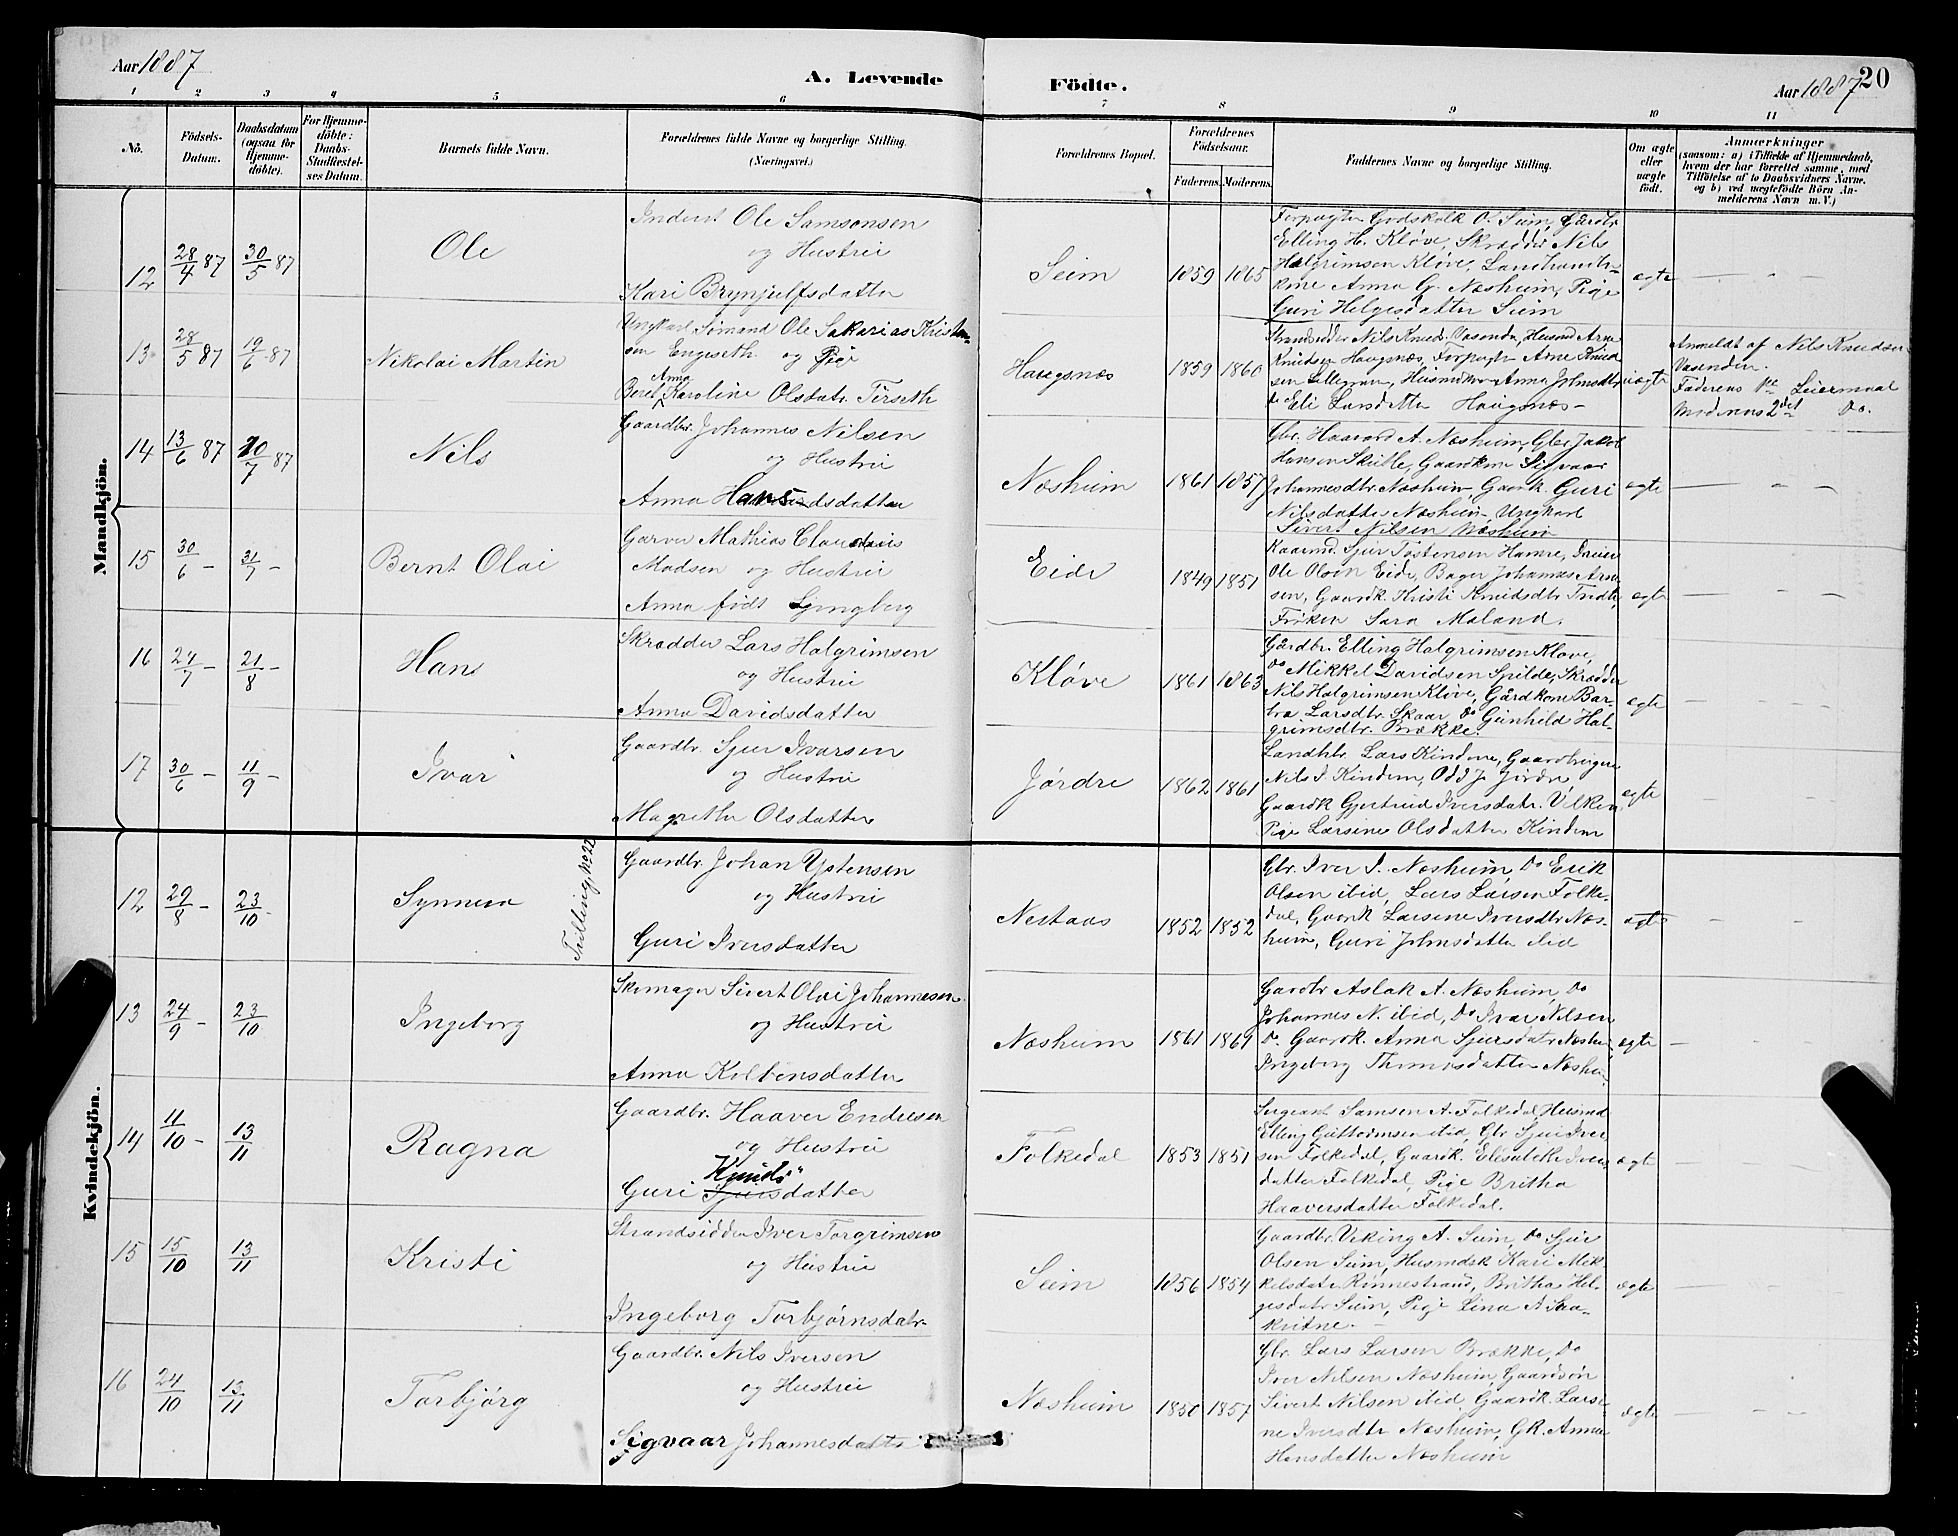 Aar 1887
A. Levende
Födte.
Aar 1887
20
1 2 3 4 5 6 7 8 9 10 11
No.
Födsels-
Datum.
Daabsdatum
(ogsaa for
Hjemme-
döbte).
For Hjemme-
döbte:
Daabs-
Stadfæstel-
ses Datum.
Barnets fulde Navn.
Forældrenes fulde Navne og borgerlige Stilling.
(Næringsvei.)
Forældrenes Bopæl.
Forældrenes
Födselsaar.
Faderens. Moderens.
Faddernes Navne og borgerlige Stilling.
Om ægte
eller
uægte
födt.
Anmærkninger
(saasom: a) i Tilfælde af Hjemmedaab,
hvem der har forrettet samme, med
Tilföielse af to Daabsvidners Navne.
og b) ved uægtefödte Börn An-
melderens Navn m. V.)
Mandkjön.
12 28/4 87 30/5 87 Ole
Inderst Ole Samsonsen
og Hustru
Kari Brynjulfsdatter
Seim 1859 1865
Forpagter Godskalk O. Seim, Gårdbr
Elling H. Kløve, Skrædder Nils
Halgrimsen Kløve, Landhandl-
kone Anna G. Næsheim, Pige
Guri Helgesdatter Seim
ægte
13 28/5 87 19/6 87 Nikolai Martin
Ungkarl Sömand Ole Sakarias Kristen-
sen Engeseth og Pige
Anna
Beret Karoline Olsdatr Tirseth
Haugsnæs 1859 1860
Strandsidder Nils Knuds. Vasenden, Husmd Arne
Knudsen Haugsnæs, Forpagter Arne Knud
sen Lillegraven, Husmdkone Anna Johnsdtr
do Eli Larsdatter Haugsnæs
uægte
Anmeldt af Nils Knudsen
Vasenden.
Faderens 1ste Leiermaal
Moderens 2det Do.
14 13/6 87 10/7 87 Nils
Gaardbr. Johannes Nilsen
og Hustru
Anna Hansdatter
Næsheim 1861 1857
Gbr. Haavard A. Næsheim, Gbr Jakob
Hansen Skutle, Gaardkone Sigvaar
Johannesdtr Næsheim, Gaardk. Guri
Nilsdatter Næsheim, Ungkarl
Sivert Nilsen Næsheim
ægte
15 30/6 – 31/7 – Bernt Olai
Garver Mathias Claudius
Madsen og Hustru
Anna født Ljungberg
Eide 1849 1851
Kaarmd. Sjur Tostensen Hamre, Dreier
Ole Olsen Eide, Bager Johannes Arne
sen, Gaardk. Kristi Knudsdtr
Frøken Sara Maland.
ægte
16 24/7 – 21/8 – Hans
Skrædder Lars Halgrimsen
og Hustru
Anna Davidsdatter
Kløve 1861 1863
Gårdbr. Elling Halgrimsen Kløve,
Do Mikkel Davidsen Spilde, Skrædder
Nils Halgrimsen Kløve, Gårdkone Bar-
bra Larsdtr. Skaar, Do Gunhild Hal-
grimsdtr. Brække.
ægte
17 30/6 – 11/9 – Ivar
Gaardbr. Sjur Ivarsen
og Hustru
Magrethe Olsdatter
Jørdre 1862 1861
Landhdr. Lars Kindem, Gaardbruger
Nils I. Kindem, Odd J. Jördre
Gaardk Gjertrud Iversdatr. Vilken
Pige Larsine Olsdatter Kindem
ægte
Kvindekjön.
12 29/8 – 23/10 Synneva
Tvilling, No 22
Gaardbr. Johan Ystensen
og Hustru
Guri Iversdatter
Nestaas 1852 1852
Gbr. Iver I. Næsheim, Do Erik
Olsen ibid, Lars Larsen Folke-
dal, Gaardk Larsine Iversdtr Næs-
heim, Guri Johnsdatter ibid
ægte
13 24/9 – 23/10 Ingeborg
Skomager Sivert Olai Johannesen
og Hustru
Anna Kolbensdatter
Næsheim 1861 1861
Gaardbr Aslak A. Næsheim, Do
Johannes N. ibid, Do Ivar Nilsen
Do. Gaardk. Anna Sjursdatr Næsheim
Ingeborg Thomasdatter Næsheim
ægte
14 11/10 – 13/11 Ragna
Gaardbr. Haaver Endresen
og Hustru
Knuds
Guri Sjursdatter
Folkedal 1853 1851
Sergeant Samsen A. Folkedal, Husmd
Elling Guttormsen ibid, Gbr Sjur Iver
sen Folkedal, Gaardk. Elisabeth Ivers
datter Folkedal, Pige Britha
Haaversdatter Folkedal.
ægte
15 15/10 13/11 Kristi
Strandsidder Iver Torgrimsen
og Hustru
Ingeborg Torbjørnsdatr
Seim 1856 1854
Gaardbr. Viking A. Seim, Do Sjur
Olsen Seim, Husmdsk Kari Mik
kelsdatr Rønnestrand, Britha Hel-
gesdatr Seim, Pige Lina A Saa-
kvitne.
ægte
16 24/10 13/11 Torbjørg
Gaardbr. Nils Iversen
og Hustru
Sigvaar Johannesdatter
Næsheim 1850 1857
Gbr. Lars Larsen Brække, Do
Iver Nilsen Næsheim, Gaardsön
Sivert Nilsen ibid, Gaardk. Larsi-
ne Iversdtr Næsheim, GK. Anna
Hansdatter Næsheim
ægte